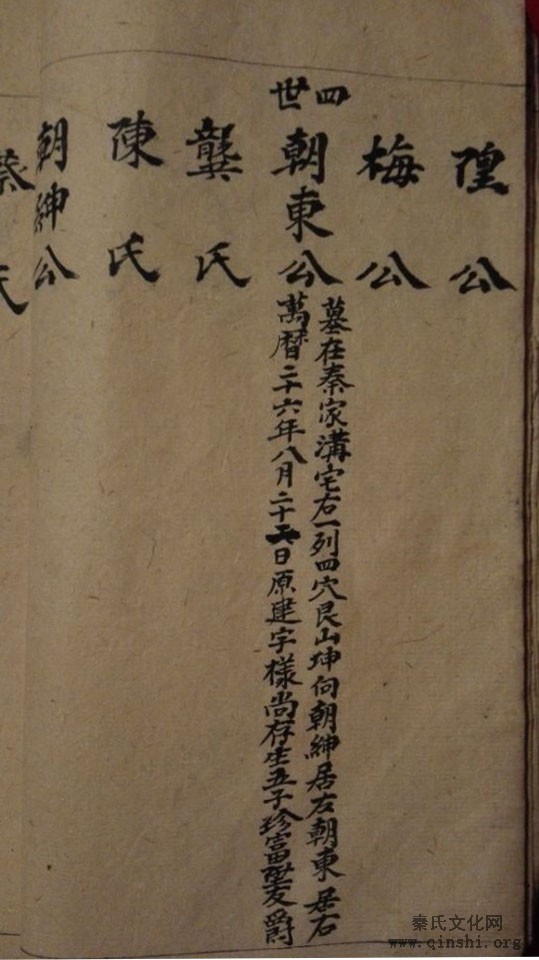 隍公
梅公
四世
朝東公
墓在秦家溝宅右一列四穴艮山坤向朝紳居左朝東居右
萬暦二十六年八月二十日原建字樣尚存生五子珍富爵
龔氏
陳氏
朝紳公
蔡氏
秦氏文化网
www.qinshi.org